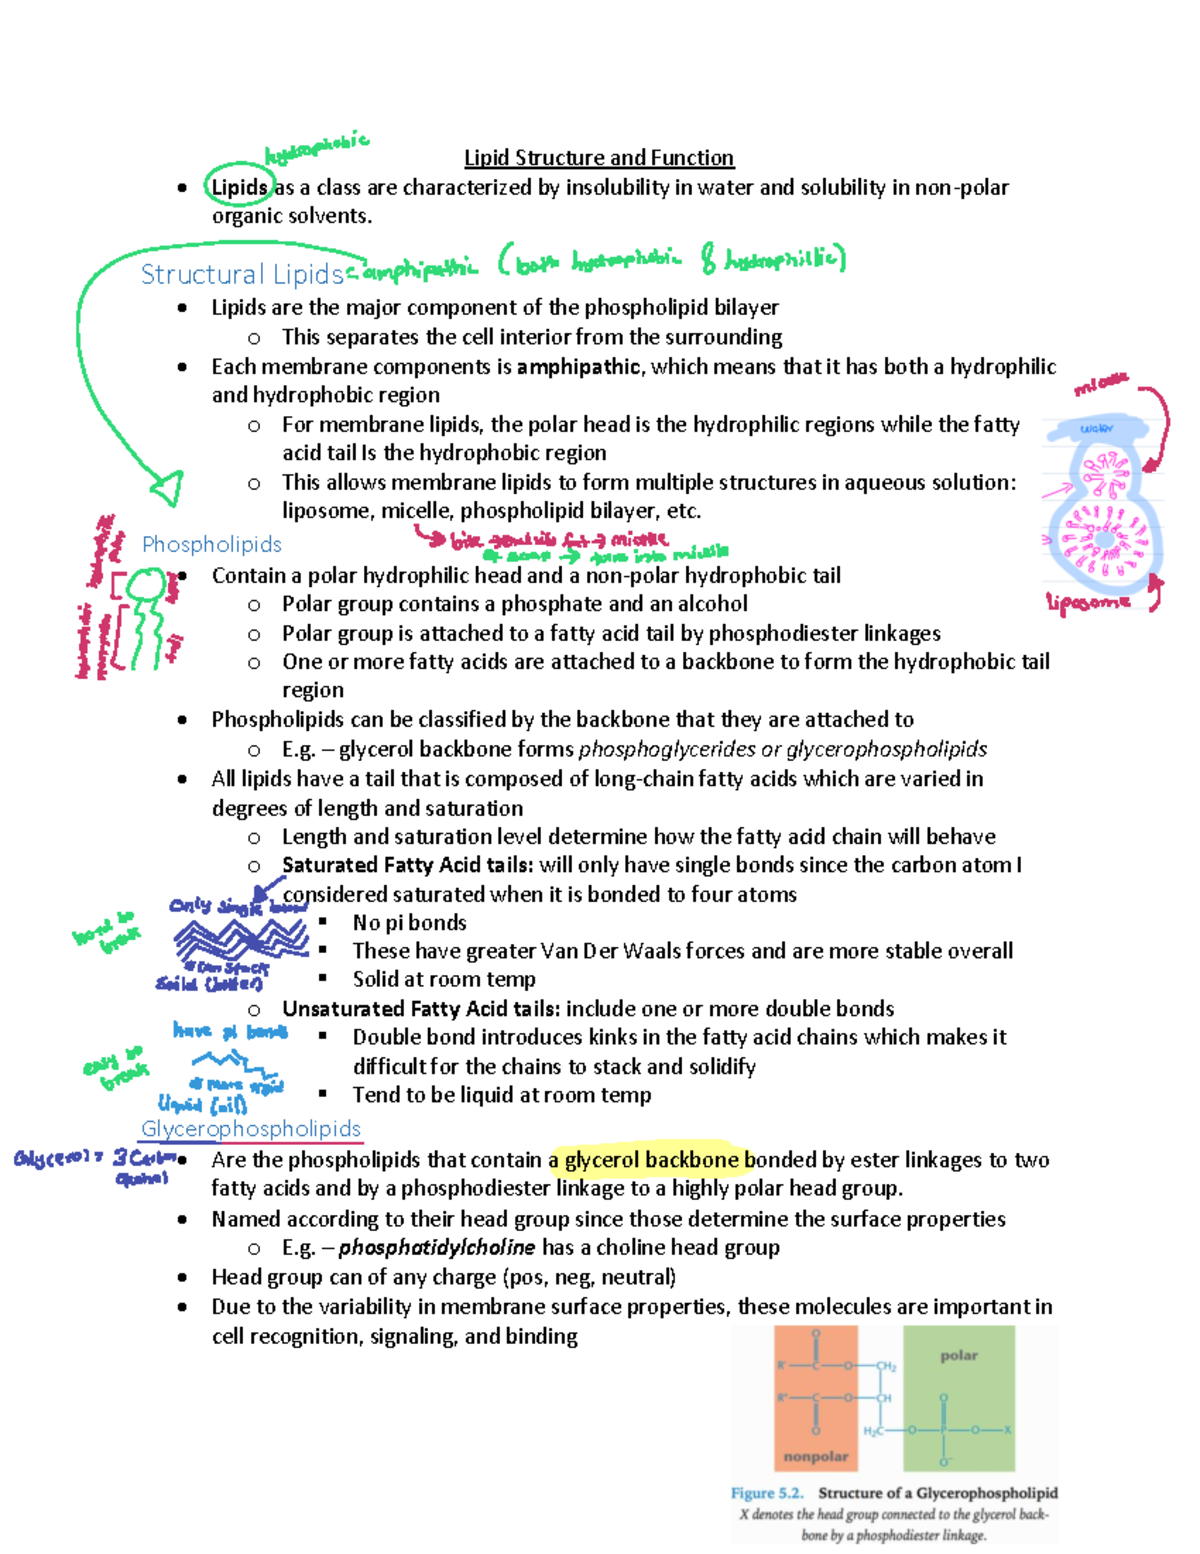 hydrophobic
Lipid Structure and Function
• Lipids as a class are characterized by insolubility in water and solubility in non-polar
organic solvents.
Structural Lipids = amphipathic (both hydrophobic & hydrophillic)
• Lipids are the major component of the phospholipid bilayer
o This separates the cell interior from the surrounding
• Each membrane components is amphipathic, which means that it has both a hydrophilic
and hydrophobic region
micelle
o For membrane lipids, the polar head is the hydrophilic regions while the fatty
water
acid tail Is the hydrophobic region
o This allows membrane lipids to form multiple structures in aqueous solution:
liposome, micelle, phospholipid bilayer, etc.
bile → emulsify fat → micelle
Phospholipids
→ turn into micelle
• Contain a polar hydrophilic head and a non-polar hydrophobic tail
liposome
o Polar group contains a phosphate and an alcohol
o Polar group is attached to a fatty acid tail by phosphodiester linkages
o One or more fatty acids are attached to a backbone to form the hydrophobic tail
region
• Phospholipids can be classified by the backbone that they are attached to
o E.g. – glycerol backbone forms phosphoglycerides or glycerophospholipids
• All lipids have a tail that is composed of long-chain fatty acids which are varied in
degrees of length and saturation
o Length and saturation level determine how the fatty acid chain will behave
o Saturated Fatty Acid tails: will only have single bonds since the carbon atom I
considered saturated when it is bonded to four atoms
Only single bond
▪ No pi bonds
hard to
break
▪ These have greater Van Der Waals forces and are more stable overall
* Can Stack
Solid (butter)
▪ Solid at room temp
o Unsaturated Fatty Acid tails: include one or more double bonds
have pi bonds
▪ Double bond introduces kinks in the fatty acid chains which makes it
difficult for the chains to stack and solidify
easy to
break
liquid (oil)
▪ Tend to be liquid at room temp
Glycerophospholipids
Glycerol = 3 Carbon
• Are the phospholipids that contain a glycerol backbone bonded by ester linkages to two
fatty acids and by a phosphodiester linkage to a highly polar head group.
• Named according to their head group since those determine the surface properties
o E.g. – phosphatidylcholine has a choline head group
• Head group can of any charge (pos, neg, neutral)
• Due to the variability in membrane surface properties, these molecules are important in
cell recognition, signaling, and binding
O
polar
R'—C—O—CH₂
R"—C—O—CH O
O H₂C—O—P—O—X
nonpolar O⁻
Figure 5.2. Structure of a Glycerophospholipid
X denotes the head group connected to the glycerol back-
bone by a phosphodiester linkage.